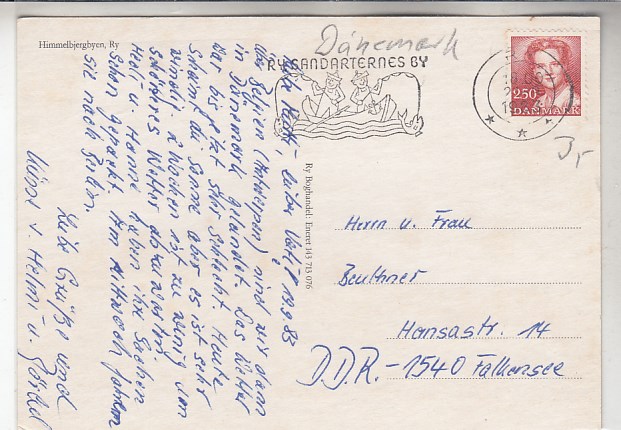 Himmelbjergbyen, Ry
Dänemark
RY SANDARTERNES BY
2.50
DANMARK
3,-
Ry Boghandel: Eneret 143 713 076
19.9.83
über Belgien (Antwerpen) sind wir dann
in Dänemark gelandet. Das Wetter
war bis jetzt sehr schlecht. Heute
scheint die Sonne aber es ist sehr
windig. 2 Wochen ist zu wenig um
schöneres Wetter abzuwarten.
Hedi u. Hanne haben ihre Sachen
schon gepackt. Am Mittwoch fahren
sie nach Berlin.
Liebe Grüße und
Küsse v. Helmi u.
Herrn u. Frau
Beuthner
Hansastr. 14
D.D.R.-1540 Falkensee